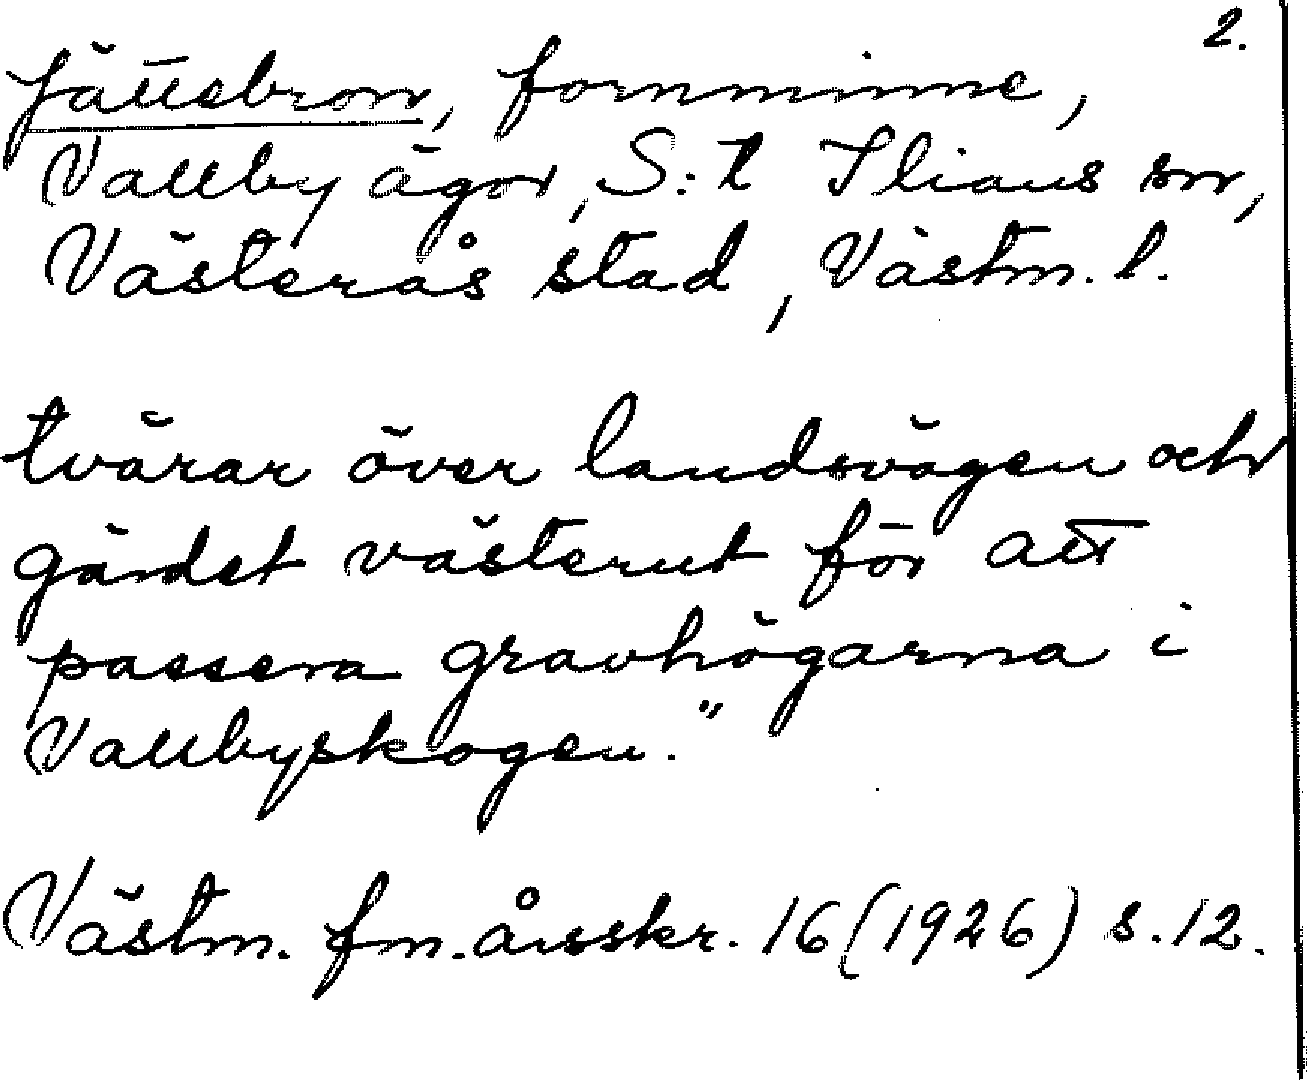 2.
Jättebron, fornminne,
Vallby ägor, S:t Ilians sn,
Västerås stad, Västm. l.
tvärar över landsvägen och
gärdet västerut för att
passera gravhögarna i
Vallbyskogen."
Västm. fm. årsskr. 16 (1926) s. 12.